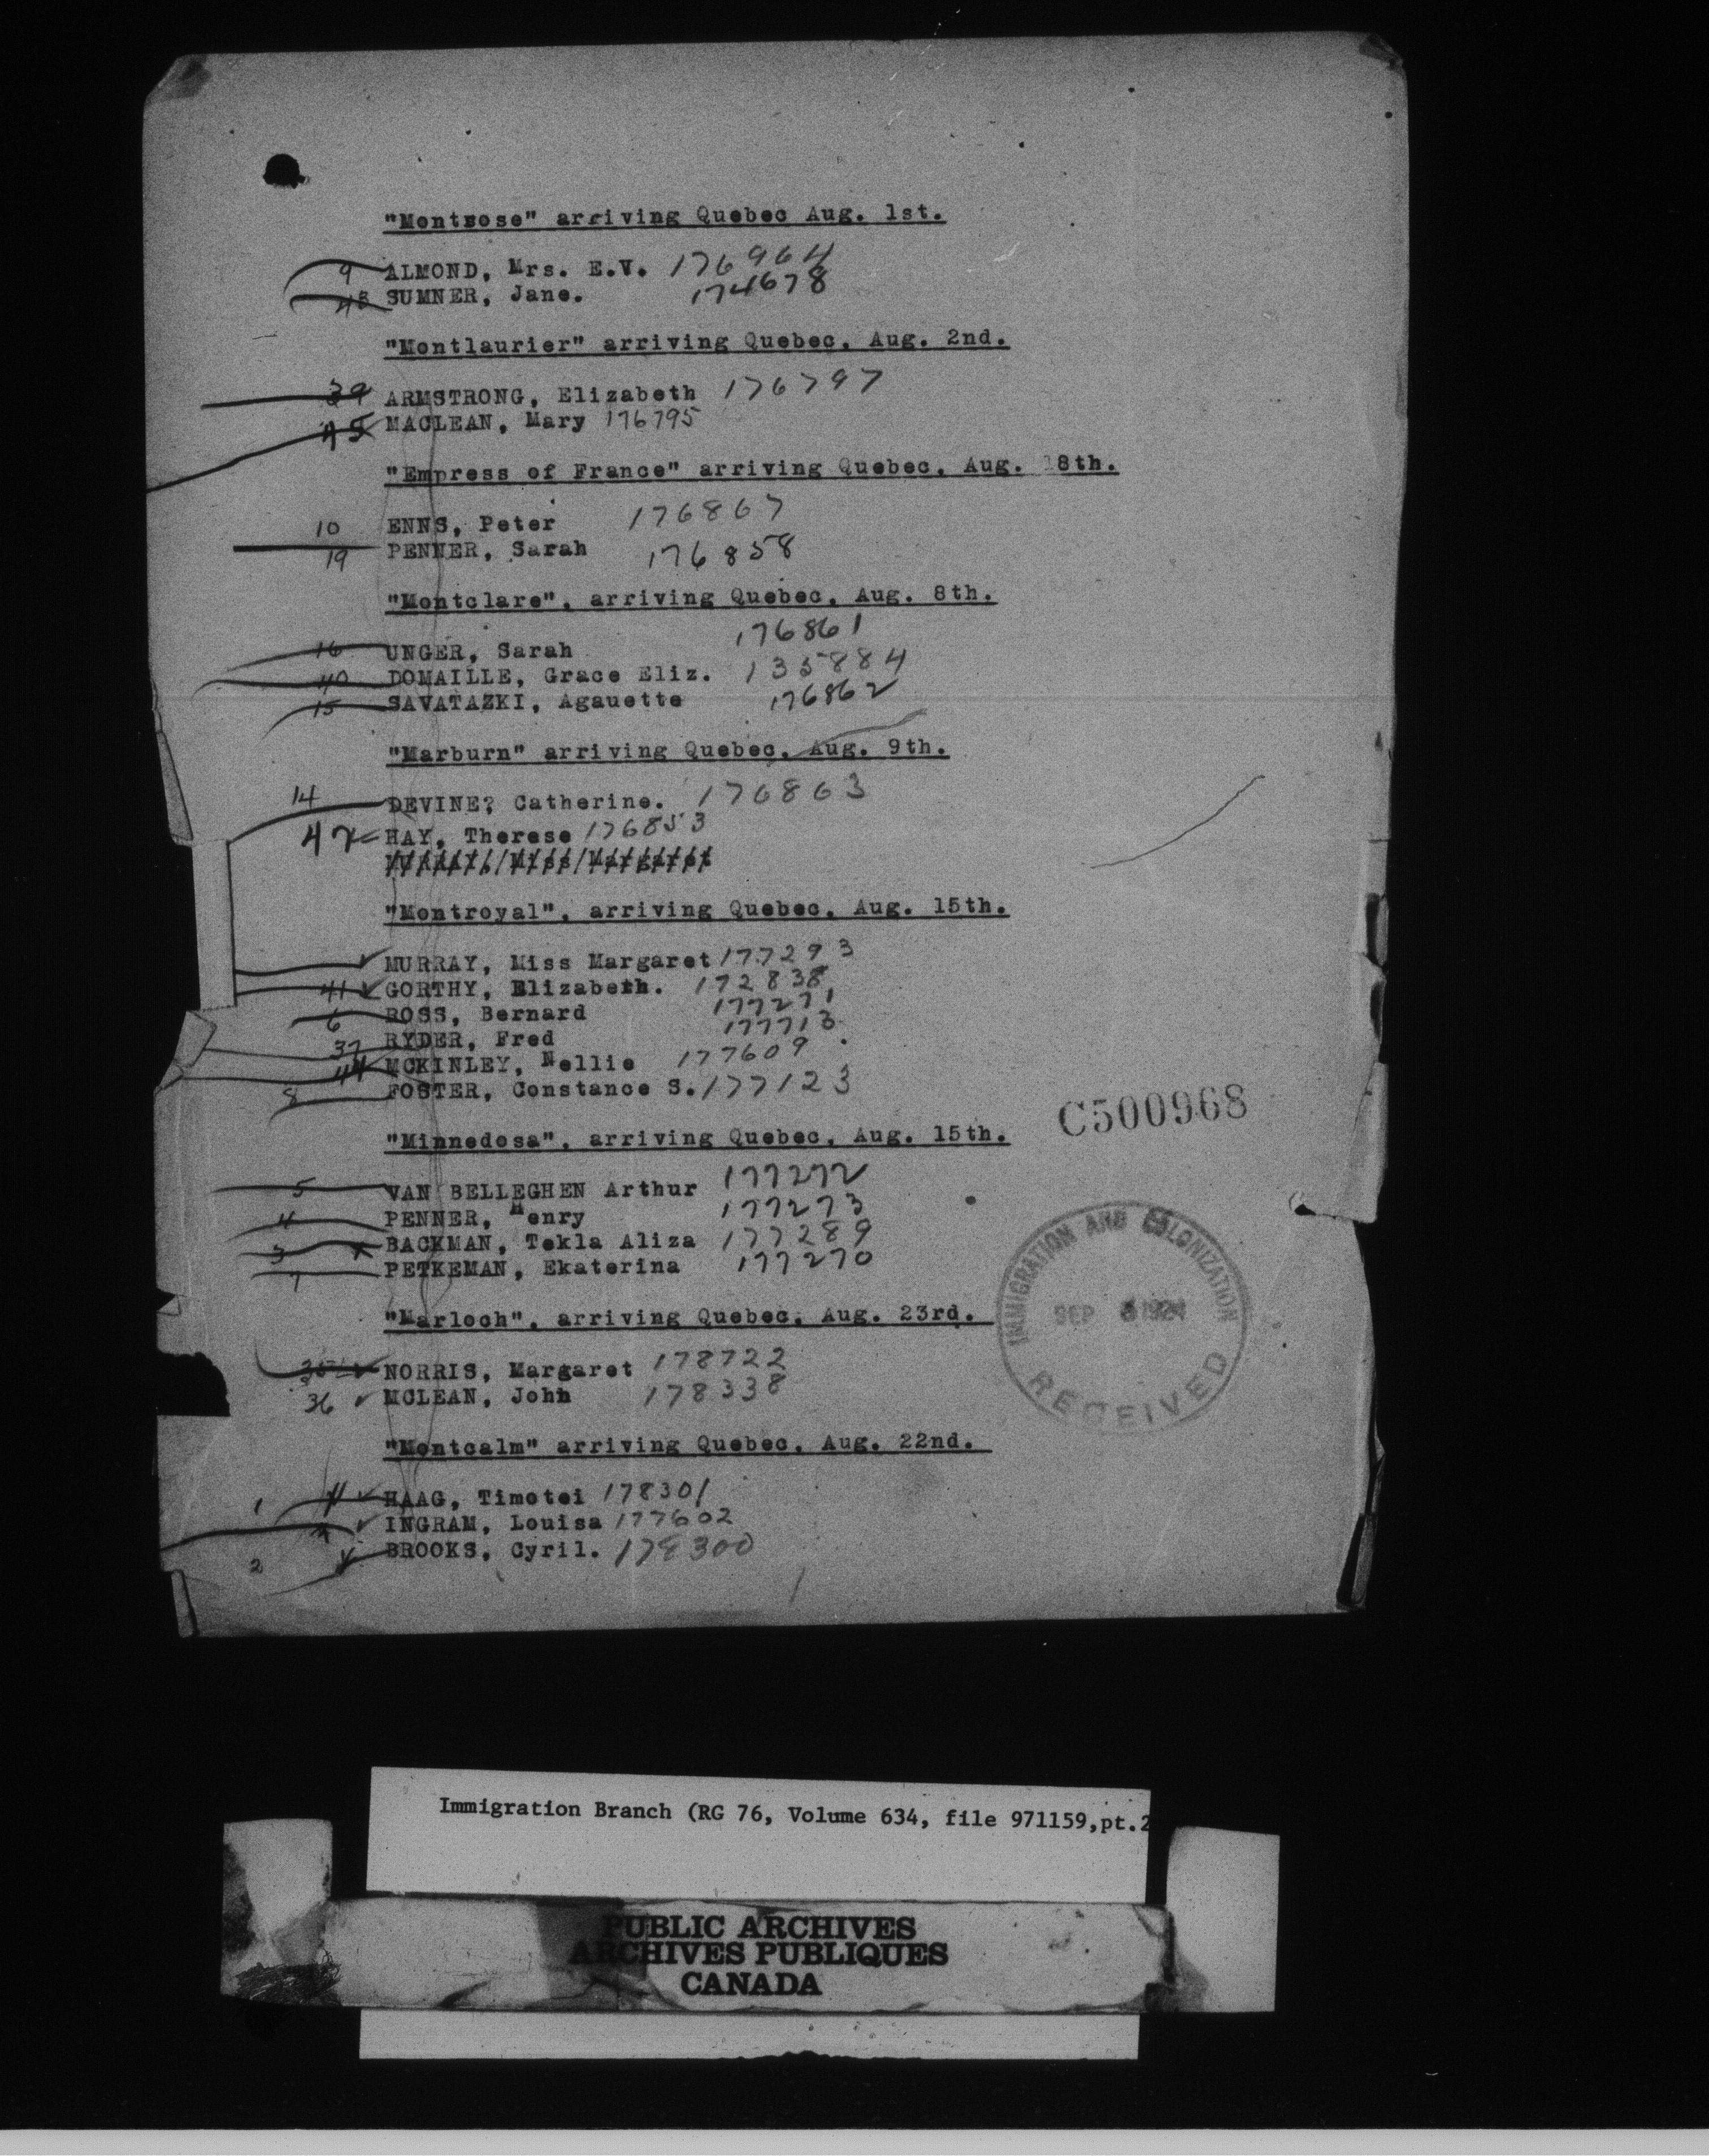 "Montrose" arriving Quebec Aug. 1st.
9 ALMOND, Mrs. E.V. 176964
43 SUMNER, Jane. 174678
"Montlaurier" arriving Quebec, Aug. 2nd.
39 ARMSTRONG, Elizabeth 176797
45 MACLEAN, Mary 176795
"Empress of France" arriving Quebec, Aug. 8th.
10 ENNS, Peter 176867
19 PENNER, Sarah 176858
"Montclare", arriving Quebec, Aug. 8th.
16 UNGER, Sarah 176861
40 DOMAILLE, Grace Eliz. 135884
15 SAVATAZKI, Agauette 176862
"Marburn" arriving Quebec, Aug. 9th.
14 DEVINE? Catherine. 176863
42 HAY, Therese 176853
"Montroyal", arriving Quebec, Aug. 15th.
MURRAY, Miss Margaret 177293
41 GORTHY, Elizabeth. 172838
6 ROSS, Bernard 177271
37 RYDER, Fred 177713
44 MCKINLEY, Nellie 177609
8 FOSTER, Constance S. 177123
C500968
"Minnedosa", arriving Quebec, Aug. 15th.
5 VAN BELLEGHEN Arthur 177272
4 PENNER, Henry 177273
3 BACKMAN, Tekla Aliza 177289
7 PETKEMAN, Ekaterina 177270
IMMIGRATION AND COLONIZATION
SEP 1924
RECEIVED
"Marloch", arriving Quebec, Aug. 23rd.
35 NORRIS, Margaret 178722
36 MCLEAN, John 178338
"Montcalm" arriving Quebec, Aug. 22nd.
1 HAAG, Timotei 178301
INGRAM, Louisa 177602
2 BROOKS, Cyril. 178300
Immigration Branch (RG 76, Volume 634, file 971159,pt.2
PUBLIC ARCHIVES
ARCHIVES PUBLIQUES
CANADA